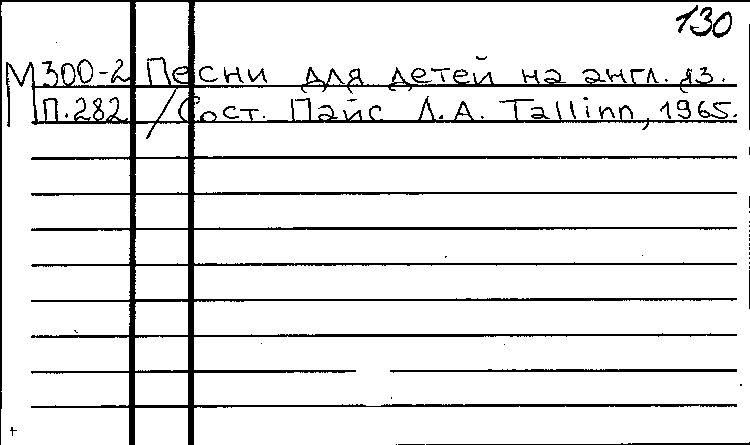 130
М300-2 Песни для детей на англ. яз.
П.282 /Сост. Пайс Л.А. Tallinn, 1965.